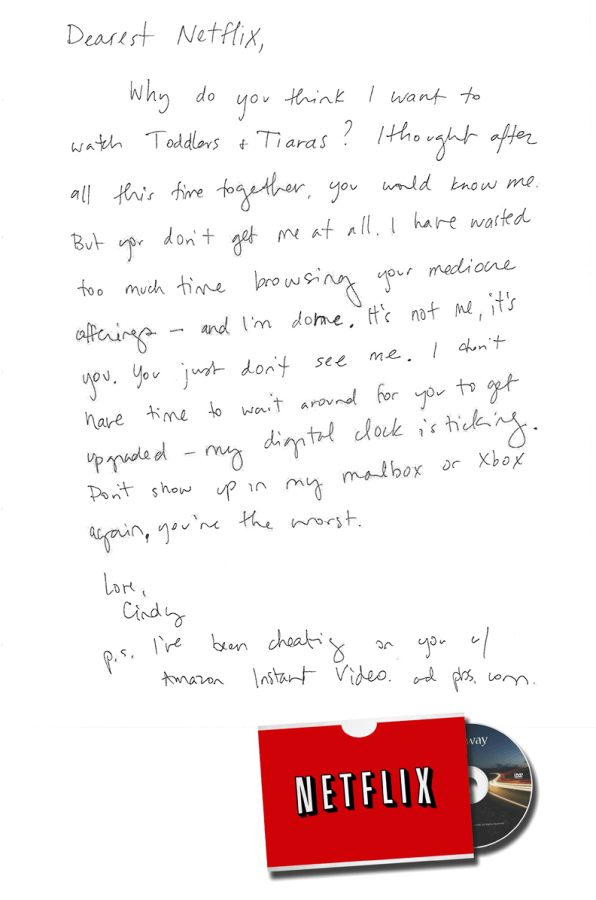 Dearest Netflix,
Why do you think I want to
watch Toddlers + Tiaras? I thought after
all this time together, you would know me.
But you don't get me at all. I have wasted
too much time browsing your mediocre
offerings – and I'm done. It's not me, it's
you. You just don't see me. I don't
have time to wait around for you to get
upgraded – my digital clock is ticking.
Don't show up in my mailbox or Xbox
again, you're the worst.
Love,
Cindy
p.s. I've been cheating on you w/
Amazon Instant Video. and pbs.com.
NETFLIX
way
DVD